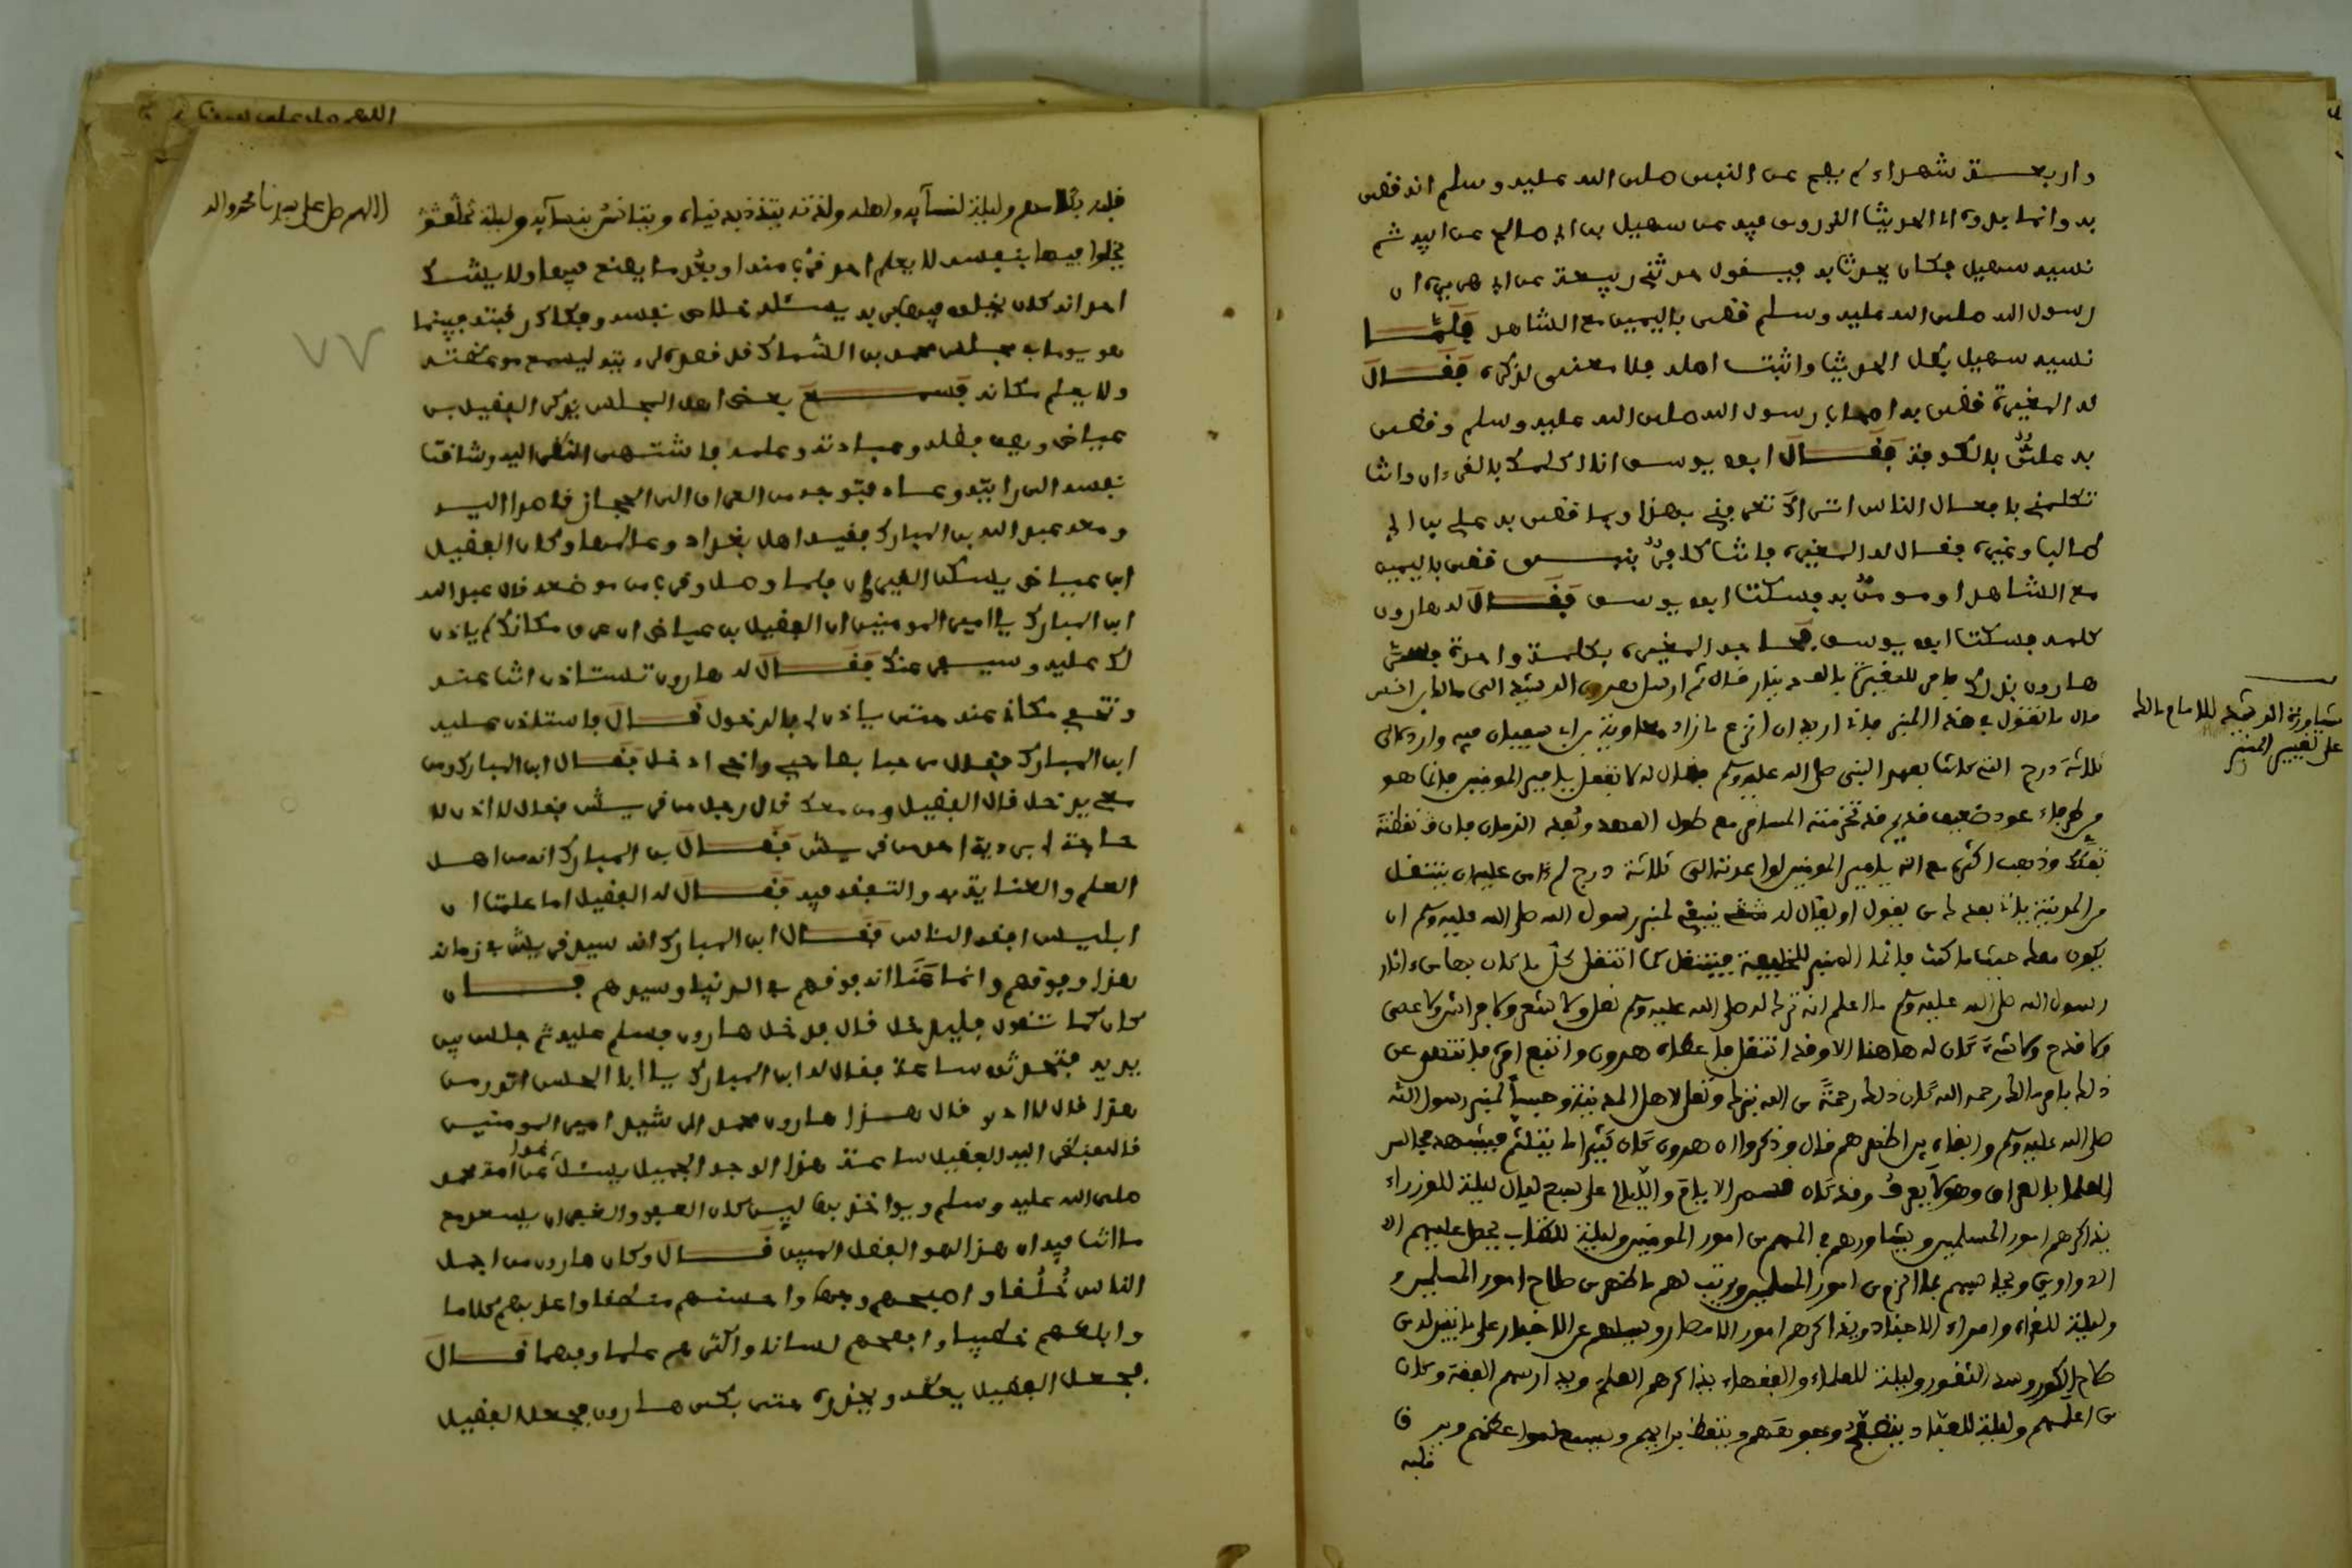 واربعة شهداء لم يصح عن النبي صلى الله عليه وسلم انه قضى
به وانما يدور هذا الحديث الذي روى فيه عن سهيل بن ابي صالح عن ابيه ثم
نسيه سهيل فكان يحدث به فيقول حدثني ربيعة عن ابي هريرة ان
رسول الله صلى الله عليه وسلم قضى باليمين مع الشاهد فلما
نسيه سهيل بطل الحديث واثبت اهله فلا معنى لذكره فقال
له المغيرة قضى به اصحاب رسول الله صلى الله عليه وسلم وقضى
به علي بالكوفة فقال ابو يوسف انا اكلمك بالقرءان وانت
تكلمني بافعال الناس اتراك تعرفني بهذا وبما قضى به علي بن ابي
طالب وغيره فقال له المغيرة فانت كافر بنبي قضى باليمين
مع الشاهد او مومن به فسكت ابو يوسف فقال له هارون
كلمه فسكت ابو يوسف فحاجه المغيرة بكلمة واحدة فسر
هارون بذلك فامر للمغيرة بالف دينار قال ثم ارسل هرون الرشيد الى مالك بن انس
قال ما تقول في هذا المنبر فاني اريد ان انزع ما زاد معاوية بن ابي سفيان فيه وارده الى
ثلاثة درج التي كانت بعهد النبي صلى الله عليه وسلم فقال له لا تفعل يا امير المومنين فانما هو
من طرفاء عود ضعيف قديم قد تخرمته المسامر مع طول العهد وبعد الزمان فان نقضته
تفكك وذهب اكثره مع انه يا امير المومنين لو اعدته الى ثلاثة درج لم ءامن عليه ان ينتقل
من المدينة ياتي بعدك من يقول او يقال له ينبغي لمنبر رسول الله صلى الله عليه وسلم ان
يكون معك حيث ما كنت فانما المنبر للخليفة فينتقل كما انتقل كل ما كان بها من ءاثار
رسول الله صلى الله عليه وسلم ما اعلم انه ترك له صلى الله عليه وسلم نعل ولا شعر ولا فراش ولا عصى
ولا قدح ولا شيء كان له هاهنا الا وقد انتقل فاطاعه هرون واتبع امره فانتهى عن
ذلك بامر مالك رحمه الله كان ذلك رحمة من الله بنبيه ونعل لاهل المدينة وحبسا لمنبر رسول الله
صلى الله عليه وسلم وابقاه بين اظهرهم قال وذكروا ان هرون كان كثيرا ما يتلثم فيشهد مجالس
العلما بالعراق وهو لا يعرف وقد كان قسم الايام والليالي على سبع ليال ليلة للوزراء
يذاكرهم امور المسلمين ويشاورهم في المهم من امور المومنين وليلة للكتاب يحمل عليهم
الدواوين ويحاسبهم عما لزم من امور المسلمين ويرتب لهم ما ظهر من صلاح امور المسلمين و
وليلة للقواد وامراء الاجناد ويذاكرهم امور الامصار ويسالهم عن الاخبار على ما يتبين له من
صلاح الكور وسد الثغور وليلة للعلماء والفقهاء يذاكرهم العلم ويدارسهم الفقه وكان
من اعلمهم وليلة للعباد يتصفح وجوههم ويتعظ برايهم ويسمع لمواعظهم ويرق
قلبه
مشاورة الرشيد للامام مالك
على تغيير المنبر
اللهم صل على سيدنا
اللهم صل على سيدنا محمد واله
٧٧
قلبه بكلامهم وليلة لنسائه واهله ولذته يتلذذ بدنياه ويتانس بنسائه وليلة
يخلوا فيها بنفسه لا يعلم احد قرب منه او بعد ما يصنع فيها ولا يشك
احد انه كان يخلو فيها بربه يسئله خلاص نفسه وفكاك رقبته فبينما
هو يوما في مجلس محمد بن السماك قد قصد لرءيته ليسمع موعظته
ولا يعلم مكانه فسمع بعض اهل المجلس يذكر الفضيل بن
عياض ويصف فضله وعبادته وعلمه فاشتهى النظر اليه وشاقت
نفسه الى رايته وعساه فتوجه من العراق الى الحجاز قاصدا اليه
ومعه عبد الله بن المبارك فقيه اهل بغداد وعالمها وكان الفضيل
ابن عياض يسكن الغيران فلما وصل وقرب من موضعه قال عبد الله
ابن المبارك يا امير المومنين ان الفضيل بن عياض ان عرف مكانك لم ياذن
لك عليه وسيهرب عنك فقال له هارون تستاذن انت عنه
وتخفي مكاني عنه حتى ياذن لي بالدخول قال فاستاذن عليه
ابن المبارك فقال مرحبا بصاحبي واخي ادخل فقال ابن المبارك ومن
معي يدخل قال الفضيل ومن معك قال رجل من قريش فقال لا اذن لا
حاجة لي برؤية احد من قريش فقال بن المبارك انه من اهل
العلم والعناية به والتفقه فيه فقال له الفضيل اما علمت ان
ابليس افقه الناس فقال ابن المبارك انه سيد قريش في زمانه
هذا وفوقهم وانما عنا انه فوقهم في الدنيا وسيدهم فان
كان كما تقول فليدخل قال فدخل هارون فسلم عليه ثم جلس بين
يديه فتحدثوا ساعة فقال له ابن المبارك يا ابا الحسن اتدري من
هذا قال لا ادري قال هذا هارون محمد الرشيد امير المومنين
قال فنظر اليه الفضيل ساعة هذا الوجه الجميل يسئل غدا عن امة محمد
صلى الله عليه وسلم ويواخذ بها ليس كان العفو والغفران يسعه مع
ما انت فيه ان هذا لهو الفضل المبين قال وكان هارون من اجمل
الناس خلقا واصبحهم وجها واحسنهم منطقا واعذبهم كلاما
وابلغهم خطيبا وافصحهم لسانا واكثرهم علما وفهما قال
فجعل الفضيل يعظه ويخوفه حتى بكى هارون فجعل الفضيل